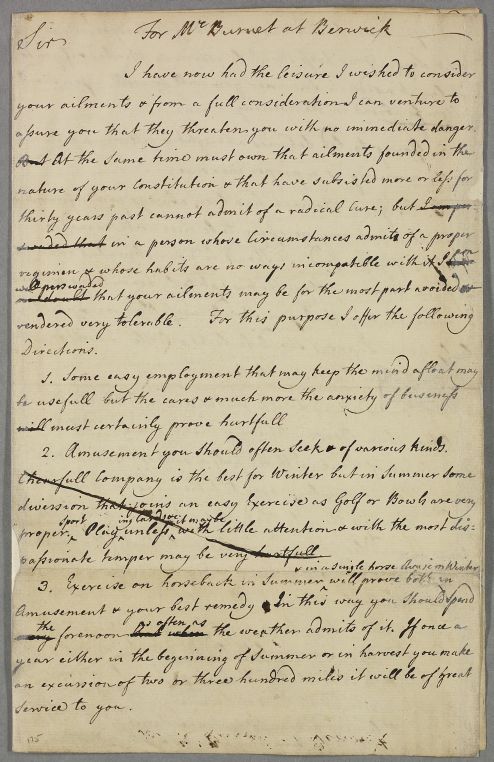 For Mr Burnet at Berwick
Sir
I have now had the leisure I wished to consider
your ailments & from a full consideration I can venture to
assure you that they threaten you with no immediate danger.
But At the same time must own that ailments founded in the
nature of your Constitution & that have subsisted more or less for
thirty years past cannot admit of a radical Cure; but I am per-
swaded that in a person whose Circumstances admits of a proper
regimen & whose habits are no ways incompatible with it I
am perswaded
that your ailments may be for the most part avoided or
rendered very tolerable. For this purpose I offer the following
Directions.
1. Some easy employment that may keep the mind afloat may
be usefull but the cares & much more the anxiety of business
will must certainly prove hurtfull
2. Amusement you should often seek & of various kinds.
Chearfull Company is the best for Winter but in Summer some
diversion that joins an easy Exercise as Golf or Bowls are very
Sport it may be
proper. Play unless with little attention & with the most dis-
passionate temper may be very hurtfull
& in a single horse Chaise in Winter
3. Exercise on horseback in Summer will prove both in
Amusement & your best remedy. In this way you should spend
the as often as
every forenoon And when the weather admits of it. If once a
year either in the beginning of Summer or in harvest you make
an excursion of two or three hundred miles it will be of great
service to you.